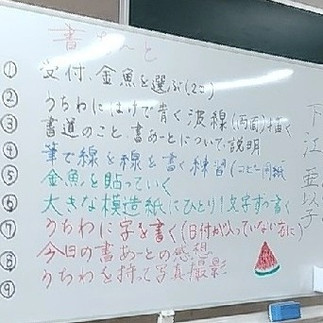 書あーと
① 受付、金魚を選ぶ(2コ)
② うちわにはけで青く波線(両面)描く
③ 書道のこと、書あーとについて説明
④ 筆で線を線を書く練習(コピー用紙
⑤ 金魚を貼っていく
⑥ 大きな模造紙にひとり1文字ずつ書く
⑦ うちわに字を書く(日付が入っていない方に)
⑧ 今日の書あーとの感想
⑨ うちわを持って写真撮影
下江亜以子